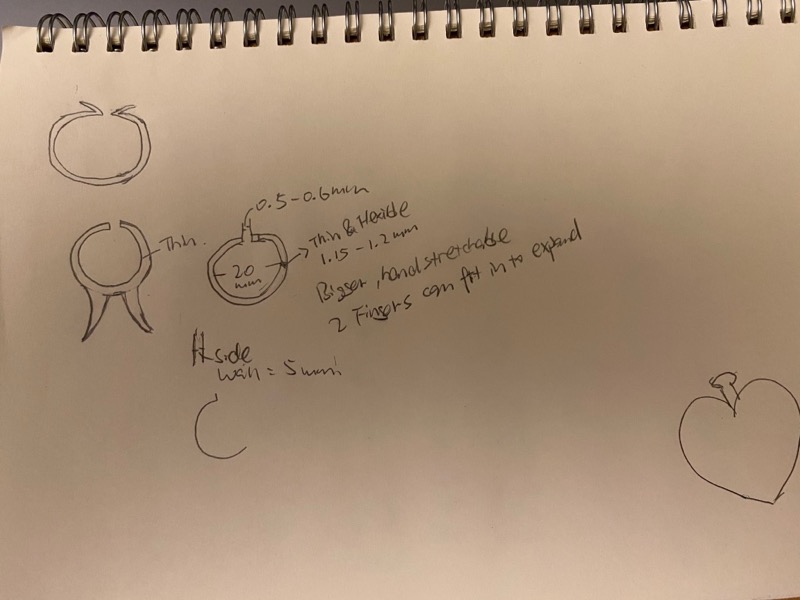 0.5-0.6mm
Thin.
Thin & flexible
1.15-1.2mm
20
mm
Bigger, hand stretchable
2 Fingers can fit in to expand
side
wall = 5mm